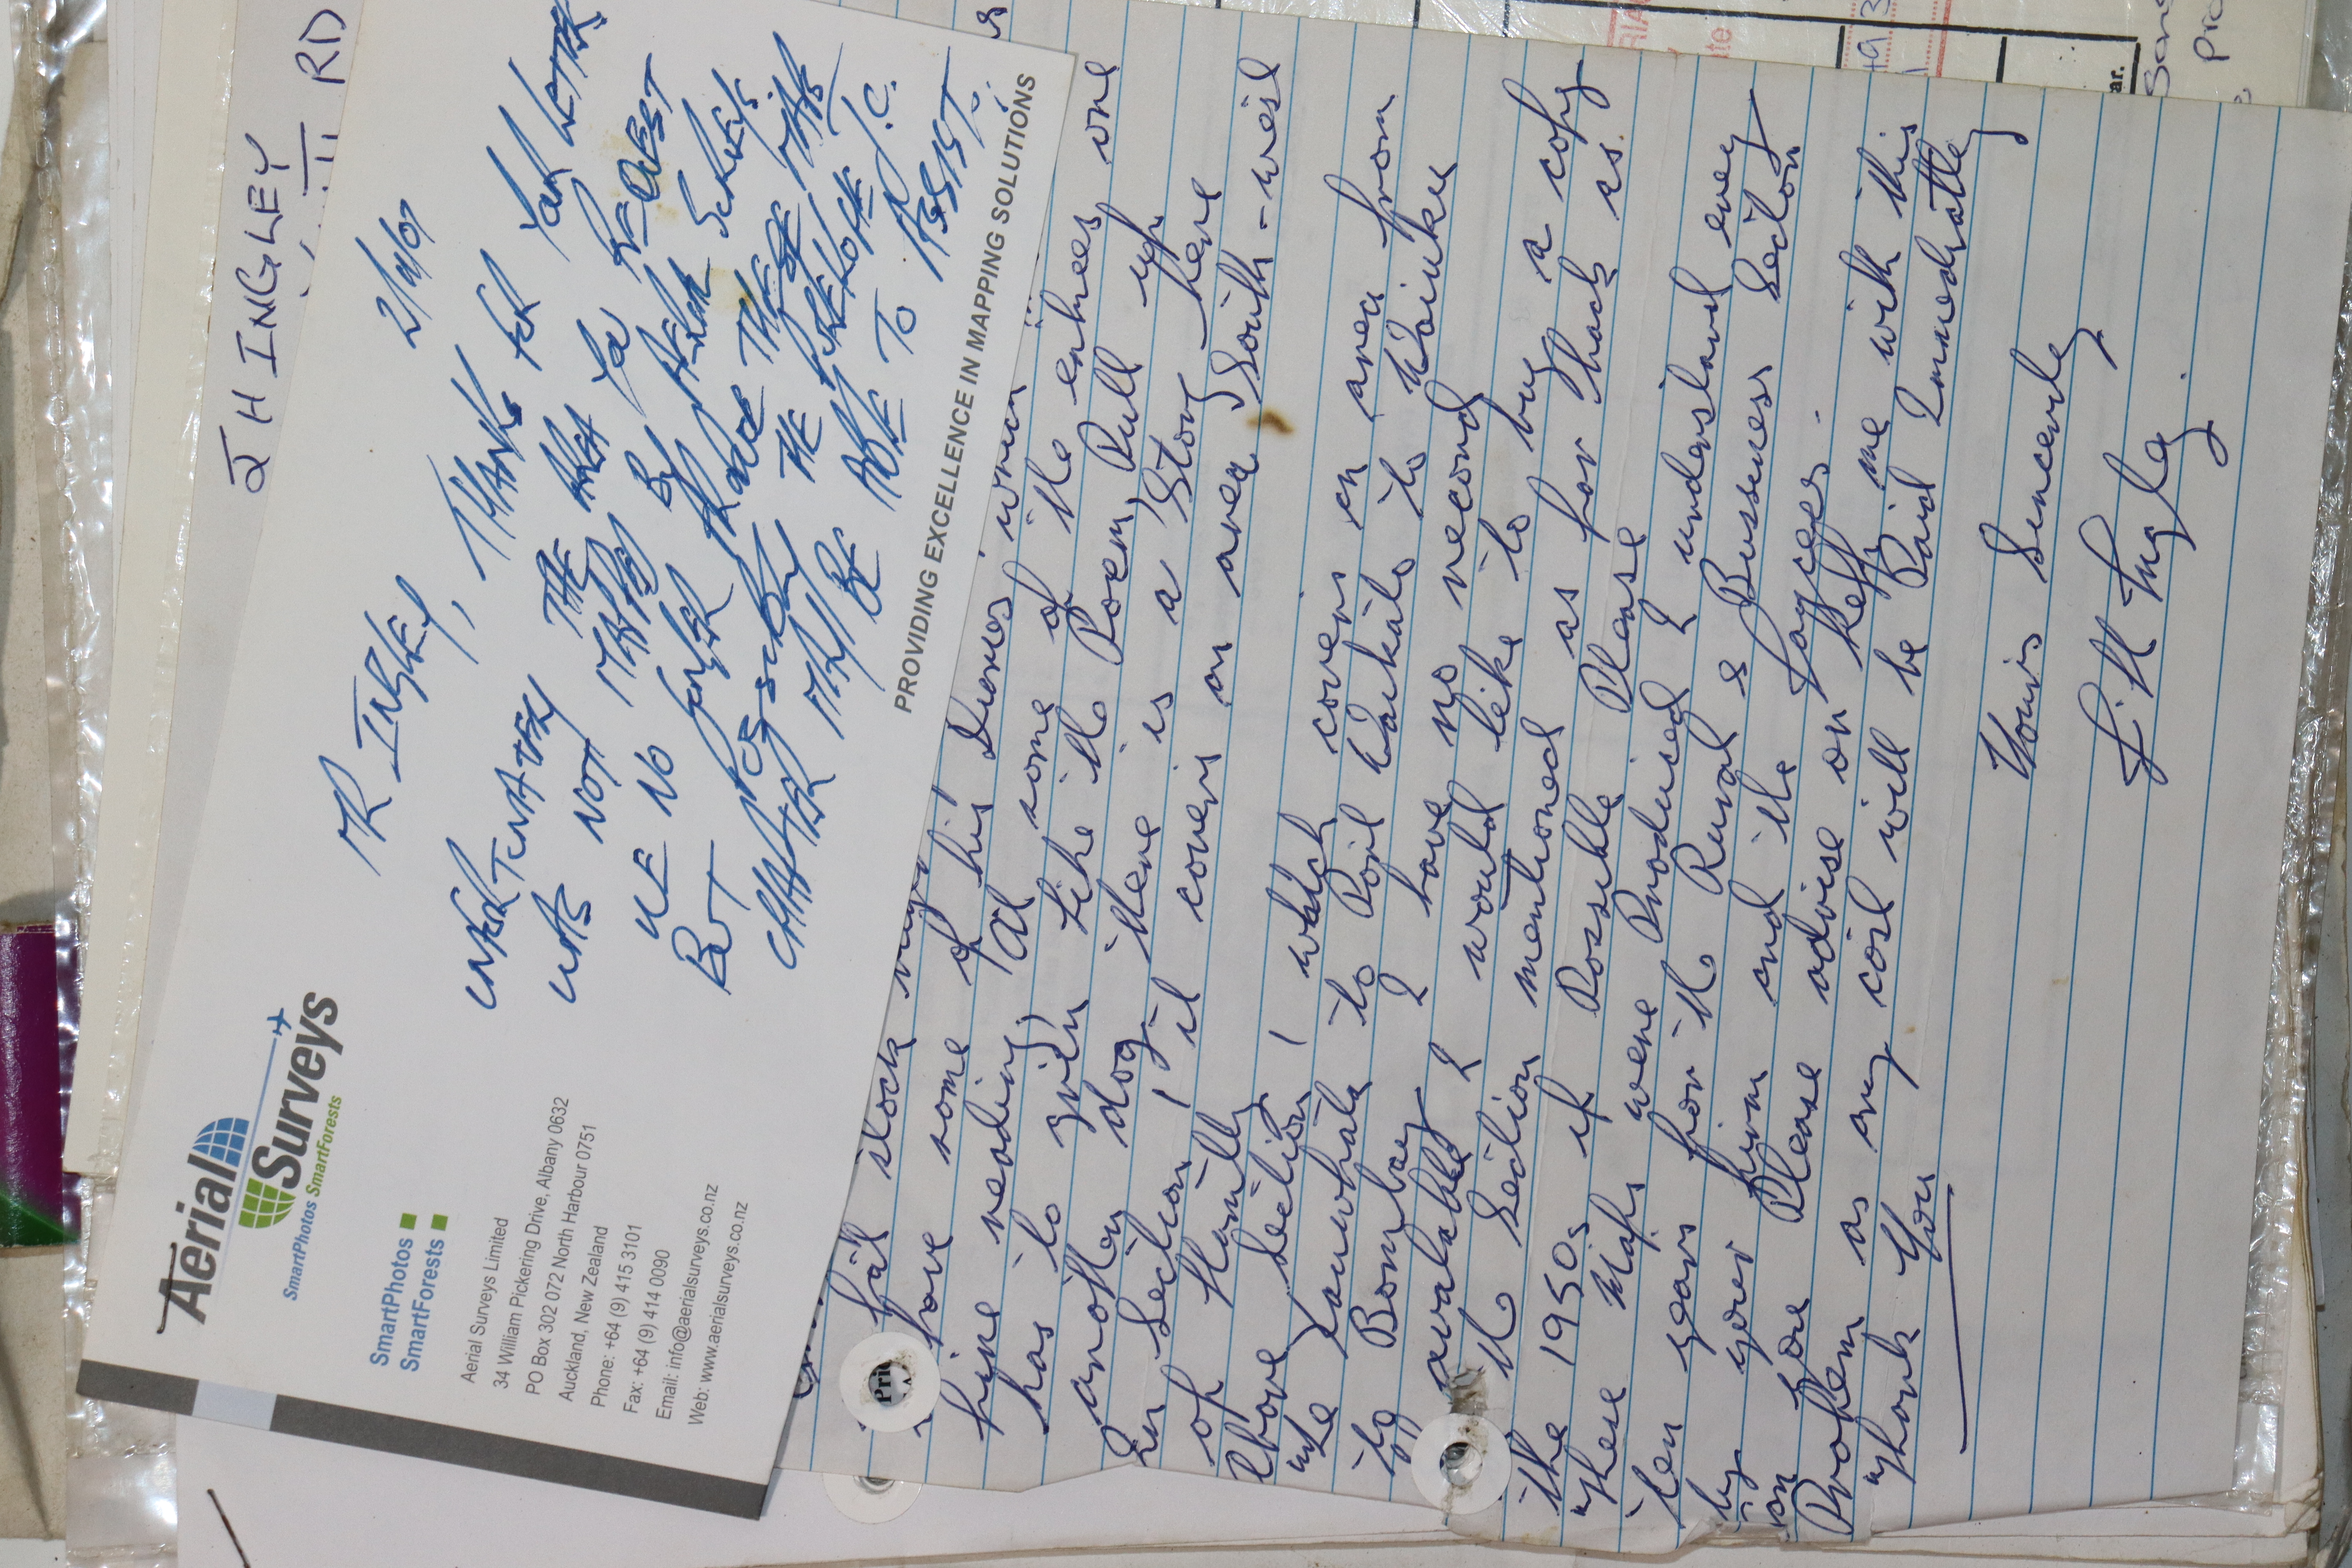 J H INGLEY
RD
Aerial
Surveys
SmartPhotos SmartForests
SmartPhotos
SmartForests
Aerial Surveys Limited
34 William Pickering Drive, Albany 0632
PO Box 302 072 North Harbour 0751
Auckland, New Zealand
Phone: +64 (9) 415 3101
Fax: +64 (9) 414 0090
Email: info@aerialsurveys.co.nz
Web: www.aerialsurveys.co.nz
MR INGLEY,
THANKS FOR YOUR LETTER
UNFORTUNATELY THE AREA YOU REQUEST
WAS NOT MAPPED BY AERIAL SURVEYS.
WE NO LONGER PRODUCE THESE MAPS
BUT POSSIBLY THE PUKEKOHE J.C.
CHAPTER MAY BE ABLE TO ASSIST.
PROVIDING EXCELLENCE IN MAPPING SOLUTIONS
fat stock
have some of his Diaries which
fine reading, At some of the entrees one
has to grin like the Poem, Pull up
another dog there is a Story here
In Section, it covers an area South-west
of Hamilly
above Section, watch covers an area from
Te Kauwhata to Port Waikato to Waiuku
to Bombay I have no record
avalable I would like to buy a copy
the Section mentioned as for back as
the 1950s if Possible Please
These Maps were Produised I understand every
ten years for the Rural & Bussiness Section
by your firm and the Jaycees.
on Please advise on help me with this
Problem as any cost will be Paid Immediatley
Thank You
Yours Sincerely,
J. H Ingley.